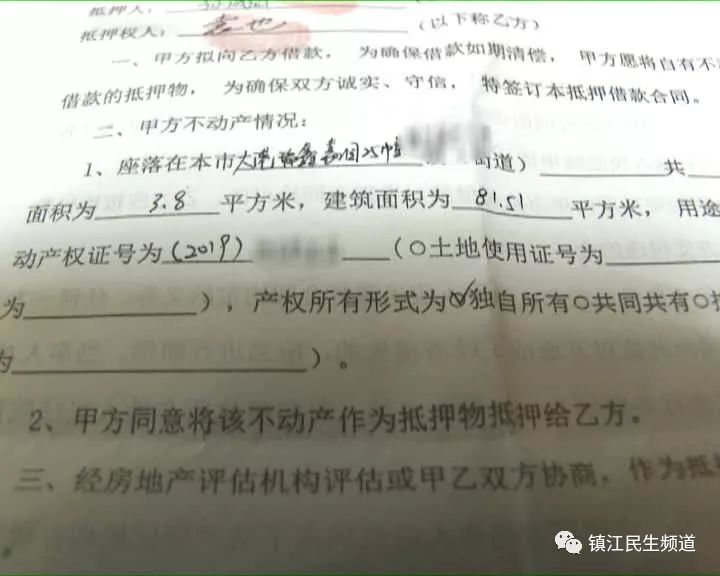 抵押人：
抵押权人： （以下称乙方）
一、甲方拟向乙方借款， 为确保借款如期清偿， 甲方愿将自有不
借款的抵押物， 为确保双方诚实、守信， 特签订本抵押借款合同。
二、甲方不动产情况：
1、座落在本市大港 嘉园25幢 街道） 共
面积为 3.8 平方米，建筑面积为 81.51 平方米， 用途
动产权证号为(2019) （○土地使用证号为
为 ），产权所有形式为○✓独自所有○共同共有○按
为 ）。
2、甲方同意将该不动产作为抵押物抵押给乙方。
三、经房地产评估机构评估或甲乙双方协商，作为抵
镇江民生频道